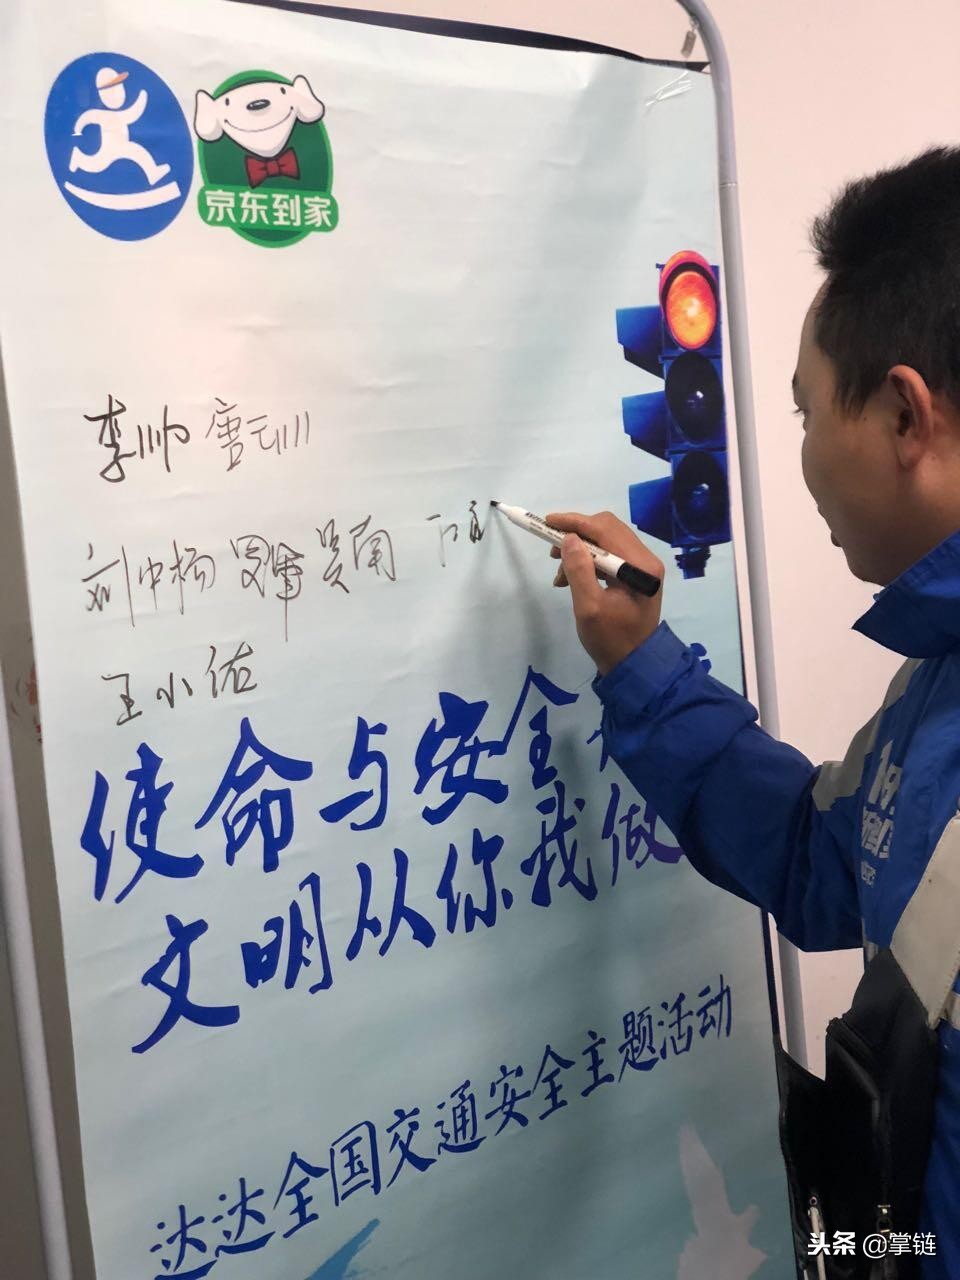 京东到家
李帅 唐云川
刘中杨 吴南
王小佑
使命与安全
文明从你我做
达达全国交通安全主题活动
头条 @掌链